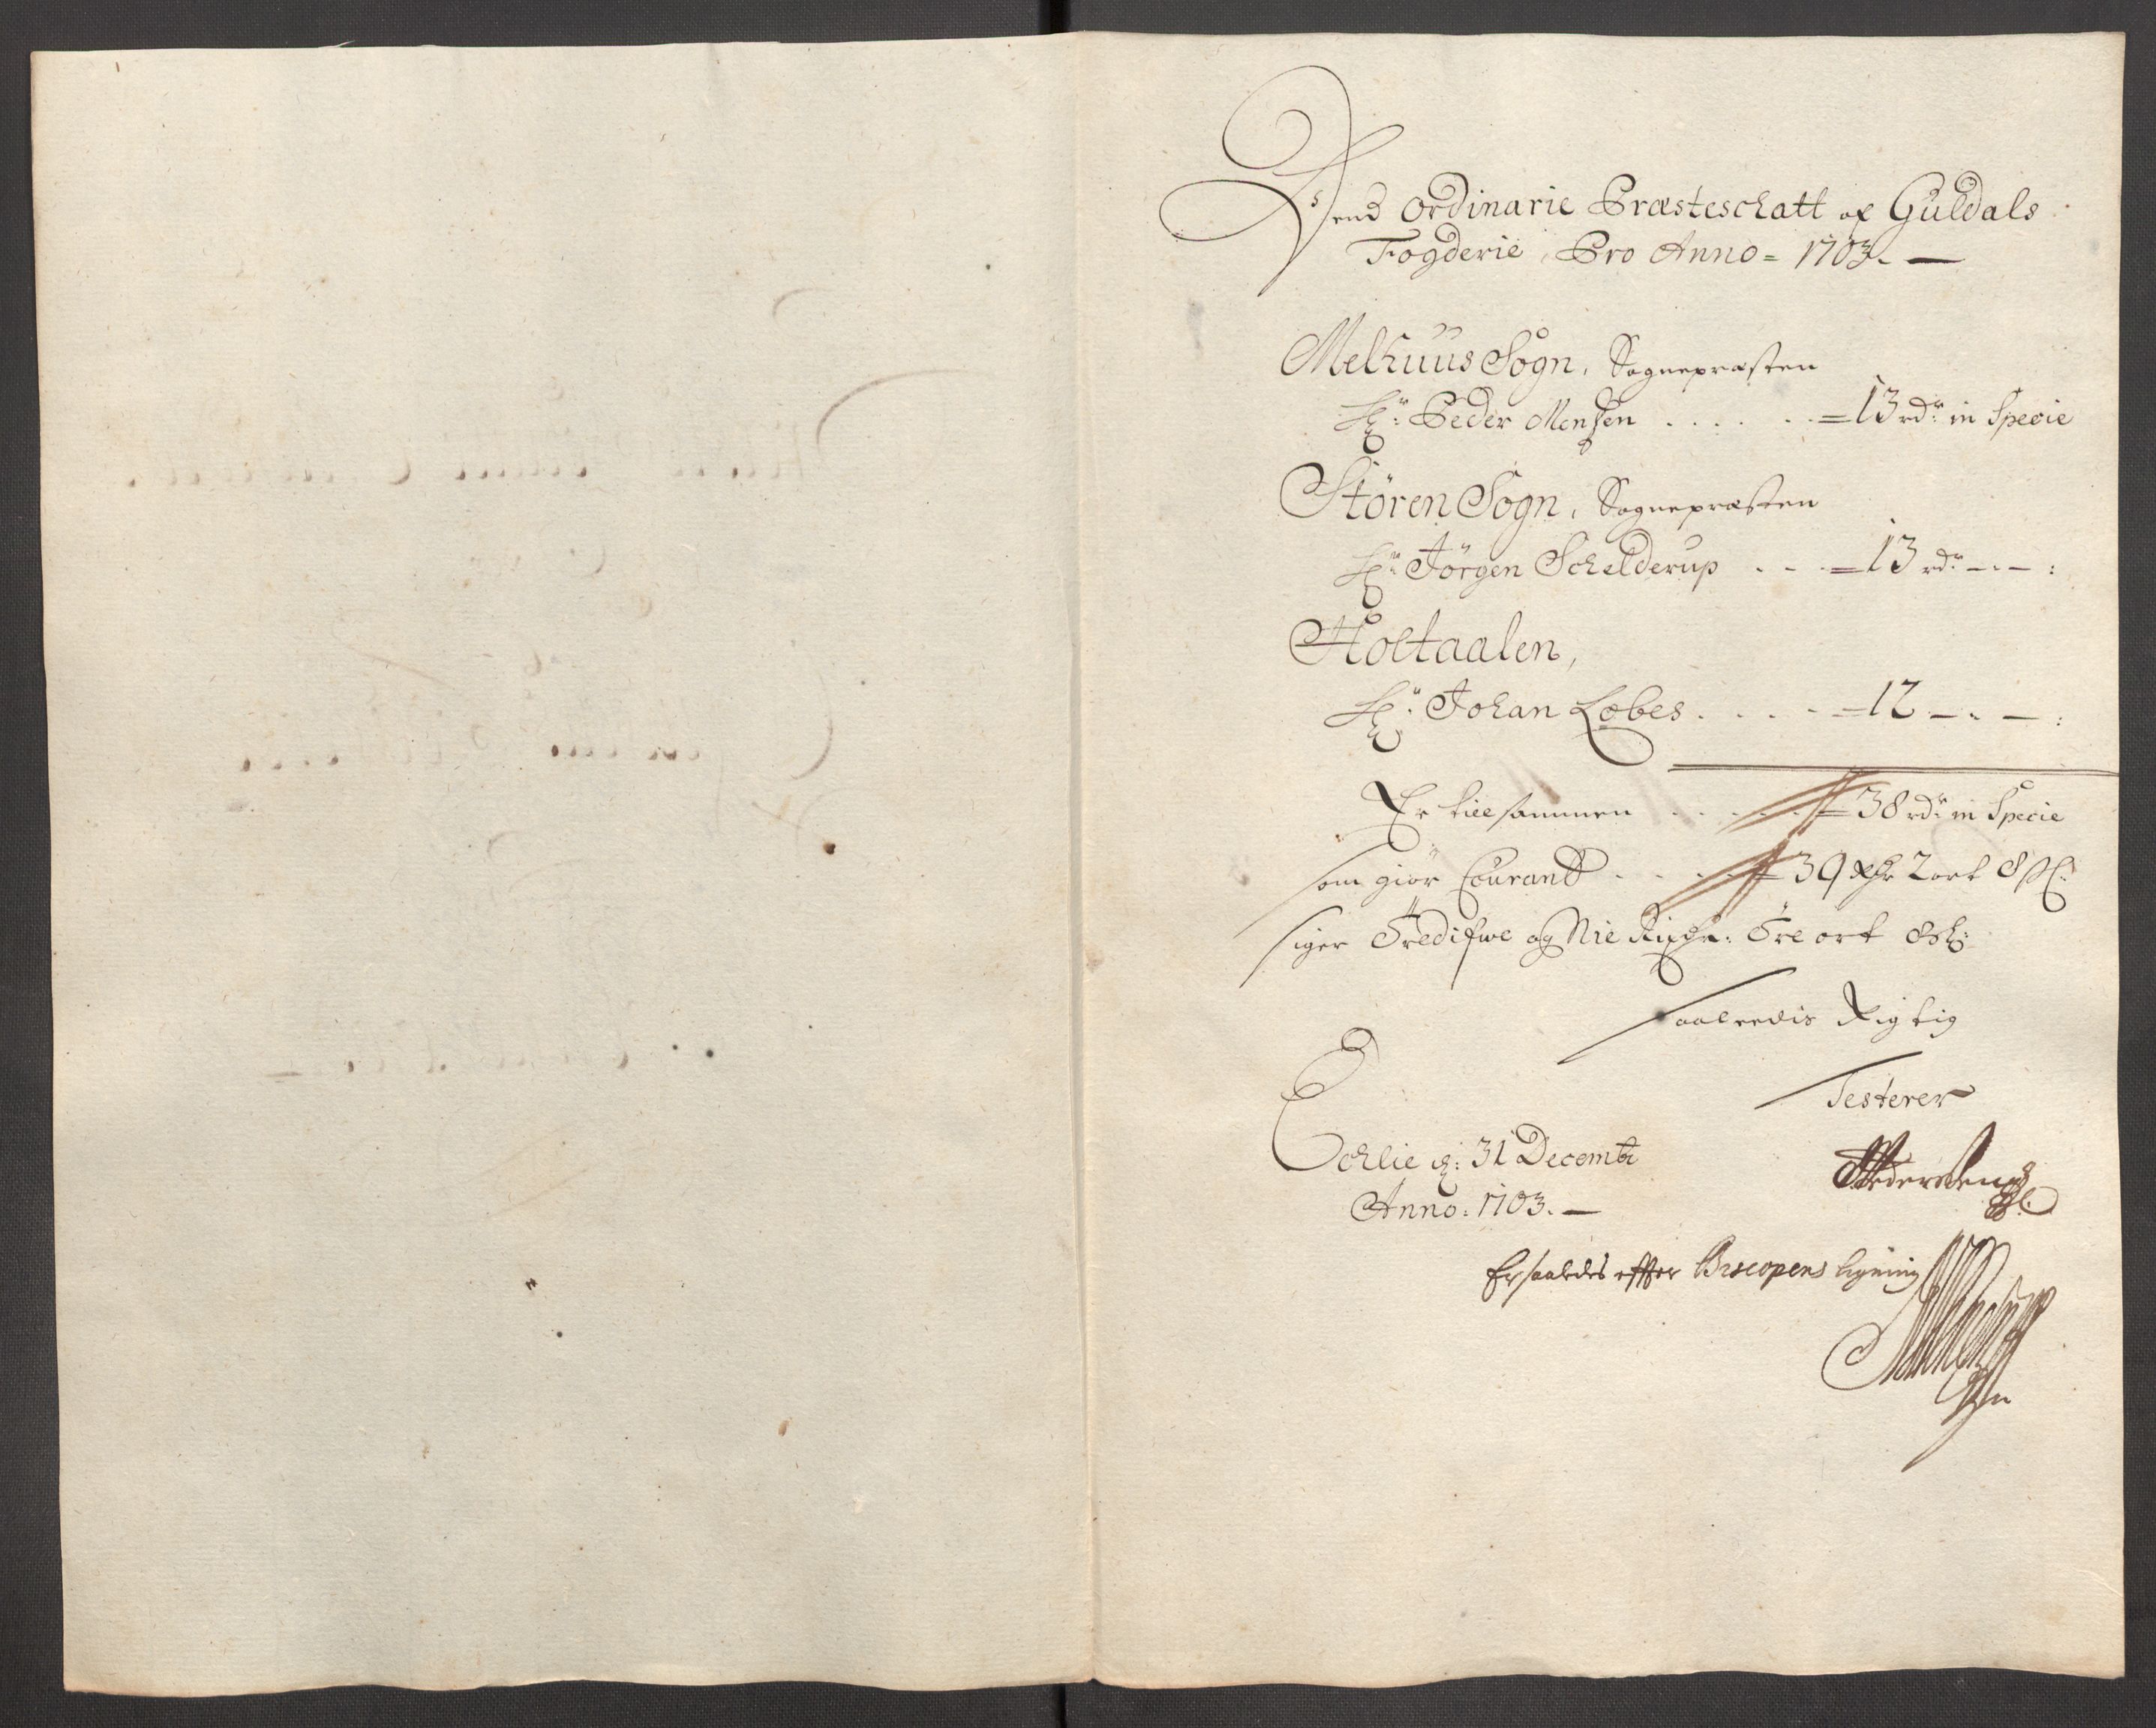 Dend Ordinarie Præsteschatt af Guldals
Fogderie, Pro Anno = 1703. —
Melhuus Sogn, Sognepræsten
Hr: Peder Mensen . . . . . = 13 rdr: in Specie
Stören Sogn, Sognepræsten
Hr: Jörgen Schelderup . - - = 13 rdr: - . - :
Holtaalen,
Hr: Johan Lobes . . . . - = 12 - . - :
Er tilsammen . . . . = 38 rdr: in Specie
som giör Courant . . . . 39 Rdr 2 ort 8 sk:
siger Tredifwe og Nie Rixdr: Tre ort 8 sk:
saaledis Rigtig
Testerer
Echlie d: 31 Decembr
Anno: 1703. —
Er saaledes effter Biscopens ligning